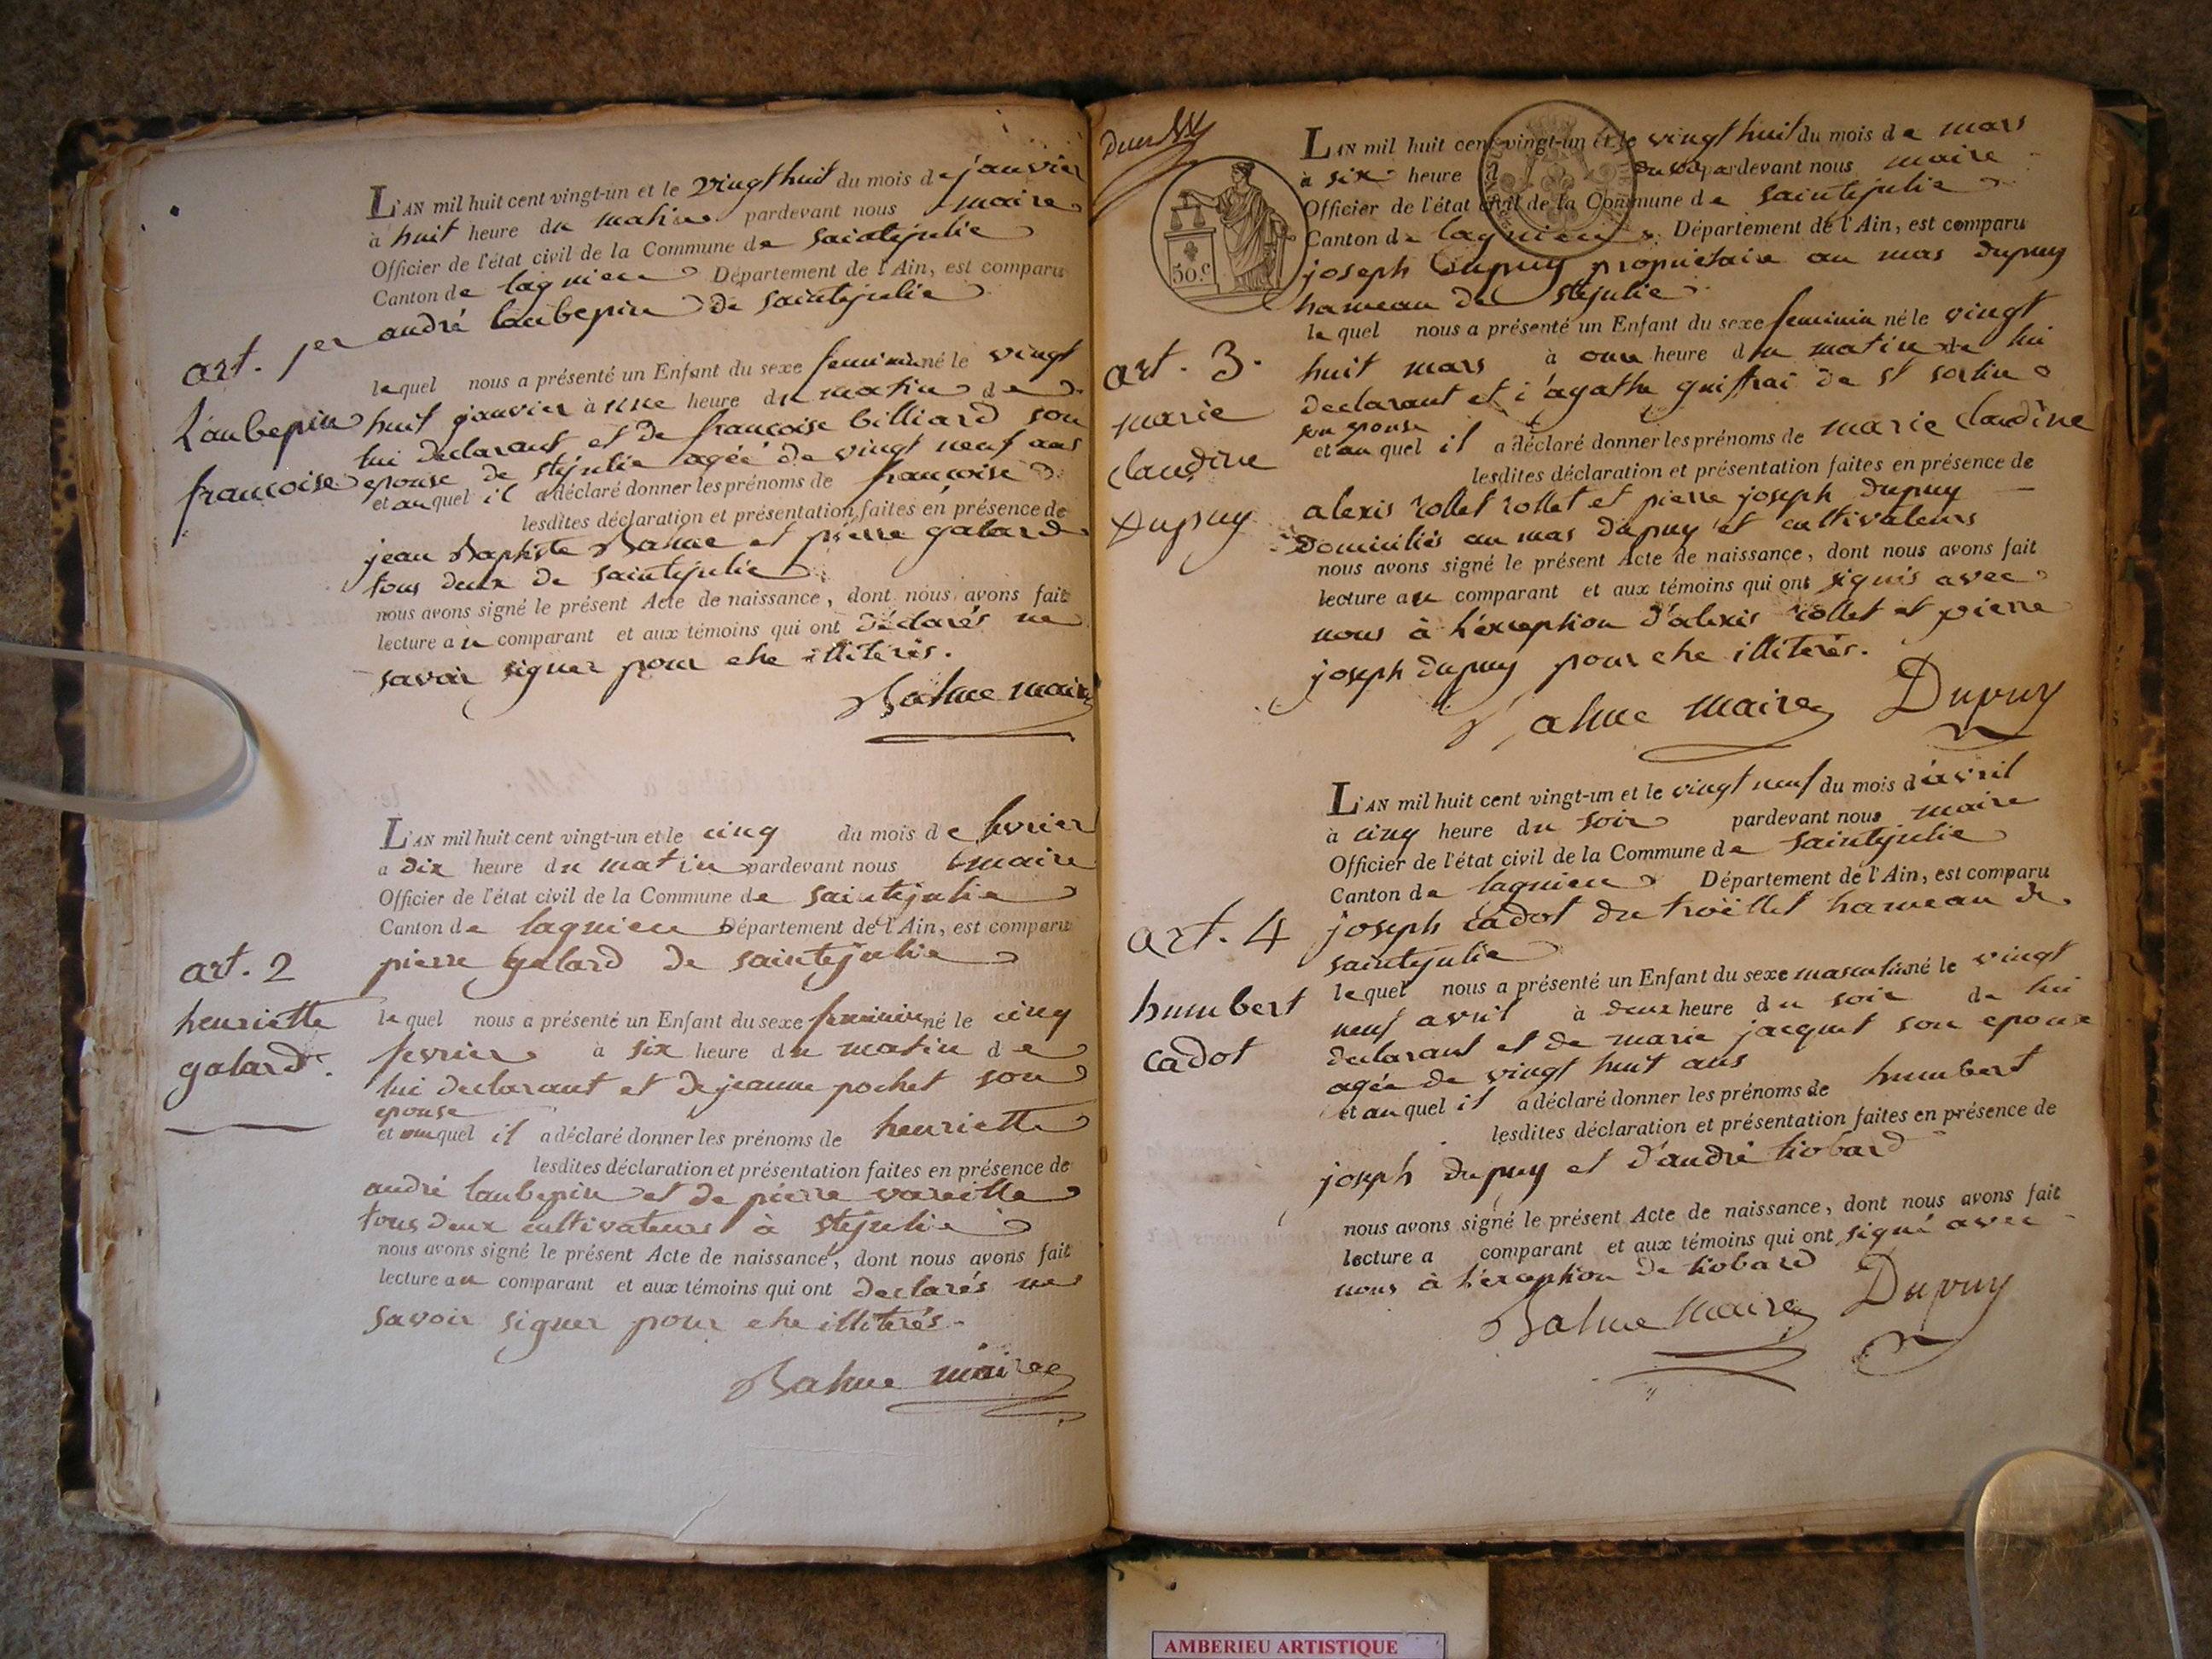 L'AN mil huit cent vingt-un et le vingt huit du mois de janvier
à huit heure du matin pardevant nous maire
Officier de l'état civil de la Commune de saintejulie
Canton de lagnieu Département de l'Ain, est comparu
andré laubepin de saintejulie
art. 1er
laubepin
francoise
lequel nous a présenté un Enfant du sexe feminin né le vingt
huit janvier à une heure du matin de
lui declarant et de francoise billiard son
epouse de stejulie agée de vingt neuf ans
et auquel il a déclaré donner les prénoms de francoise
lesdites déclaration et présentation faites en présence de
jean Baptiste et pierre galard
tous deux de saintejulie
nous avons signé le présent Acte de naissance, dont nous avons fait
lecture au comparant et aux témoins qui ont déclarés ne
savoir signer pour etre illiterés.
maire
L'AN mil huit cent vingt-un et le cinq du mois de fevrier
a dix heure du matin pardevant nous maire
Officier de l'état civil de la Commune de saintejulie
Canton de lagnieu Département de l'Ain, est comparu
pierre galard de saintejulie
art. 2
henriette
galard.
lequel nous a présenté un Enfant du sexe feminin né le cinq
fevrier à six heure du matin de
lui declarant et de jeanne pochet son
epouse
et auquel il a déclaré donner les prénoms de henriette
lesdites déclaration et présentation faites en présence de
andré laubepin et de pierre vareille
tous deux cultivateurs à stejulie
nous avons signé le présent Acte de naissance, dont nous avons fait
lecture au comparant et aux témoins qui ont declarés ne
savoir signer pour etre illiterés.
maire
50.c
L'AN mil huit cent vingt-un et le vingt huit du mois de mars
à six heure du soir pardevant nous maire
Officier de l'état civil de la Commune de saintejulie
Canton de lagnieu Département de l'Ain, est comparu
joseph Dupuy propriétaire au mas dupuy
hameau de stejulie
art. 3.
marie
claudine
Dupuy
lequel nous a présenté un Enfant du sexe feminin né le vingt
huit mars à onze heure du matin de lui
declarant et d'agathe guiffrai de st sorlin
son epouse
et auquel il a déclaré donner les prénoms de marie claudine
lesdites déclaration et présentation faites en présence de
alexis rollet rollet et pierre joseph dupuy
Domiciliés au mas dupuy et cultivateurs
nous avons signé le présent Acte de naissance, dont nous avons fait
lecture au comparant et aux témoins qui ont signés avec
nous à l'exception d'alexis rollet et pierre
joseph dupuy pour etre illiterés.
maire Dupuy
L'AN mil huit cent vingt-un et le vingt neuf du mois d'avril
à cinq heure du soir pardevant nous maire
Officier de l'état civil de la Commune de saintejulie
Canton de lagnieu Département de l'Ain, est comparu
joseph cadot du troïllet hameau de
saintejulie
art. 4
humbert
cadot
lequel nous a présenté un Enfant du sexe masculin né le vingt
neuf avril à deux heure du soir de lui
declarant et de marie jacquet son epouse
agée de vingt huit ans
et auquel il a déclaré donner les prénoms de humbert
lesdites déclaration et présentation faites en présence de
joseph dupuy et d'andré liobard
nous avons signé le présent Acte de naissance, dont nous avons fait
lecture a comparant et aux témoins qui ont signé avec
nous à l'exception de liobard
maire Dupuy
AMBERIEU ARTISTIQUE